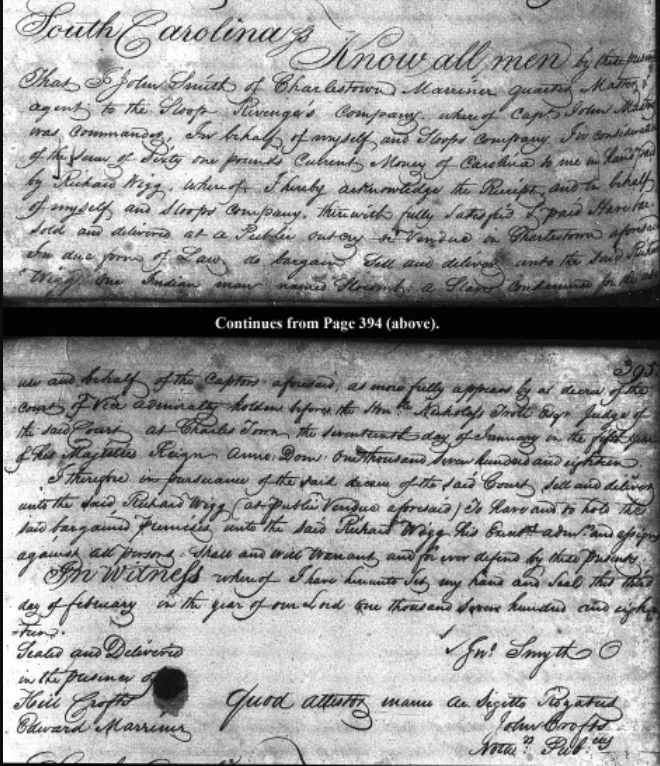 South Carolina ss
Know all men by these presents
That I John Smith of Charlestown Marriner quarter Master &
agent to the Sloop Revenge's Company whereof Capt John
was Commander, In behalf of myself and Sloops Company In consideration
of the Sum of Sixty one pounds Current Money of Carolina to me in hand paid
by Richard Wigg, whereof I hereby acknowledge the Receipt, and in behalf
of myself and Sloops Company, therewith fully Satisfied & paid Have bar:
Sold and delivered at a Publick outcry or Vendue in Charlestown aforesaid
In due form of Law, do bargain Sell and deliver unto the Said Richard
Wigg one Indian man named Slocomb a Slave Condemned for the
Continues from Page 394 (above).
395
use and behalf of the Captors aforesaid, as more fully appears by a decree of the
Court of Vice Admiralty holden before the Hon.ble Nicholass Trott Esqr Judge of
the said Court at Charles Town the seventeenth day of January in the fifth year
of his Majesties Reign Anno: Dom: One thousand seven hundred and eighteen.
I therefore in pursuance of the said decree of the said Court Sell and deliver
unto the said Richard Wigg (at publick Vendue aforesaid) To have and to hold the
said bargained premises unto the said Richard Wigg his Execrs admrs and assigns
against all persons Shall and will warrant and for ever defend by these presents
In witness whereof I have hereunto Set my hand and Seal this third
day of february in the year of our Lord One thousand Seven hundred and eigh
=teen.
Sealed and Delivered Jno: Smyth O
in the presence of
Hill Crofts Quod attestor manu ac Sigillo Rogatus
Edward Marriner John Crofts
Notrs Pubcus